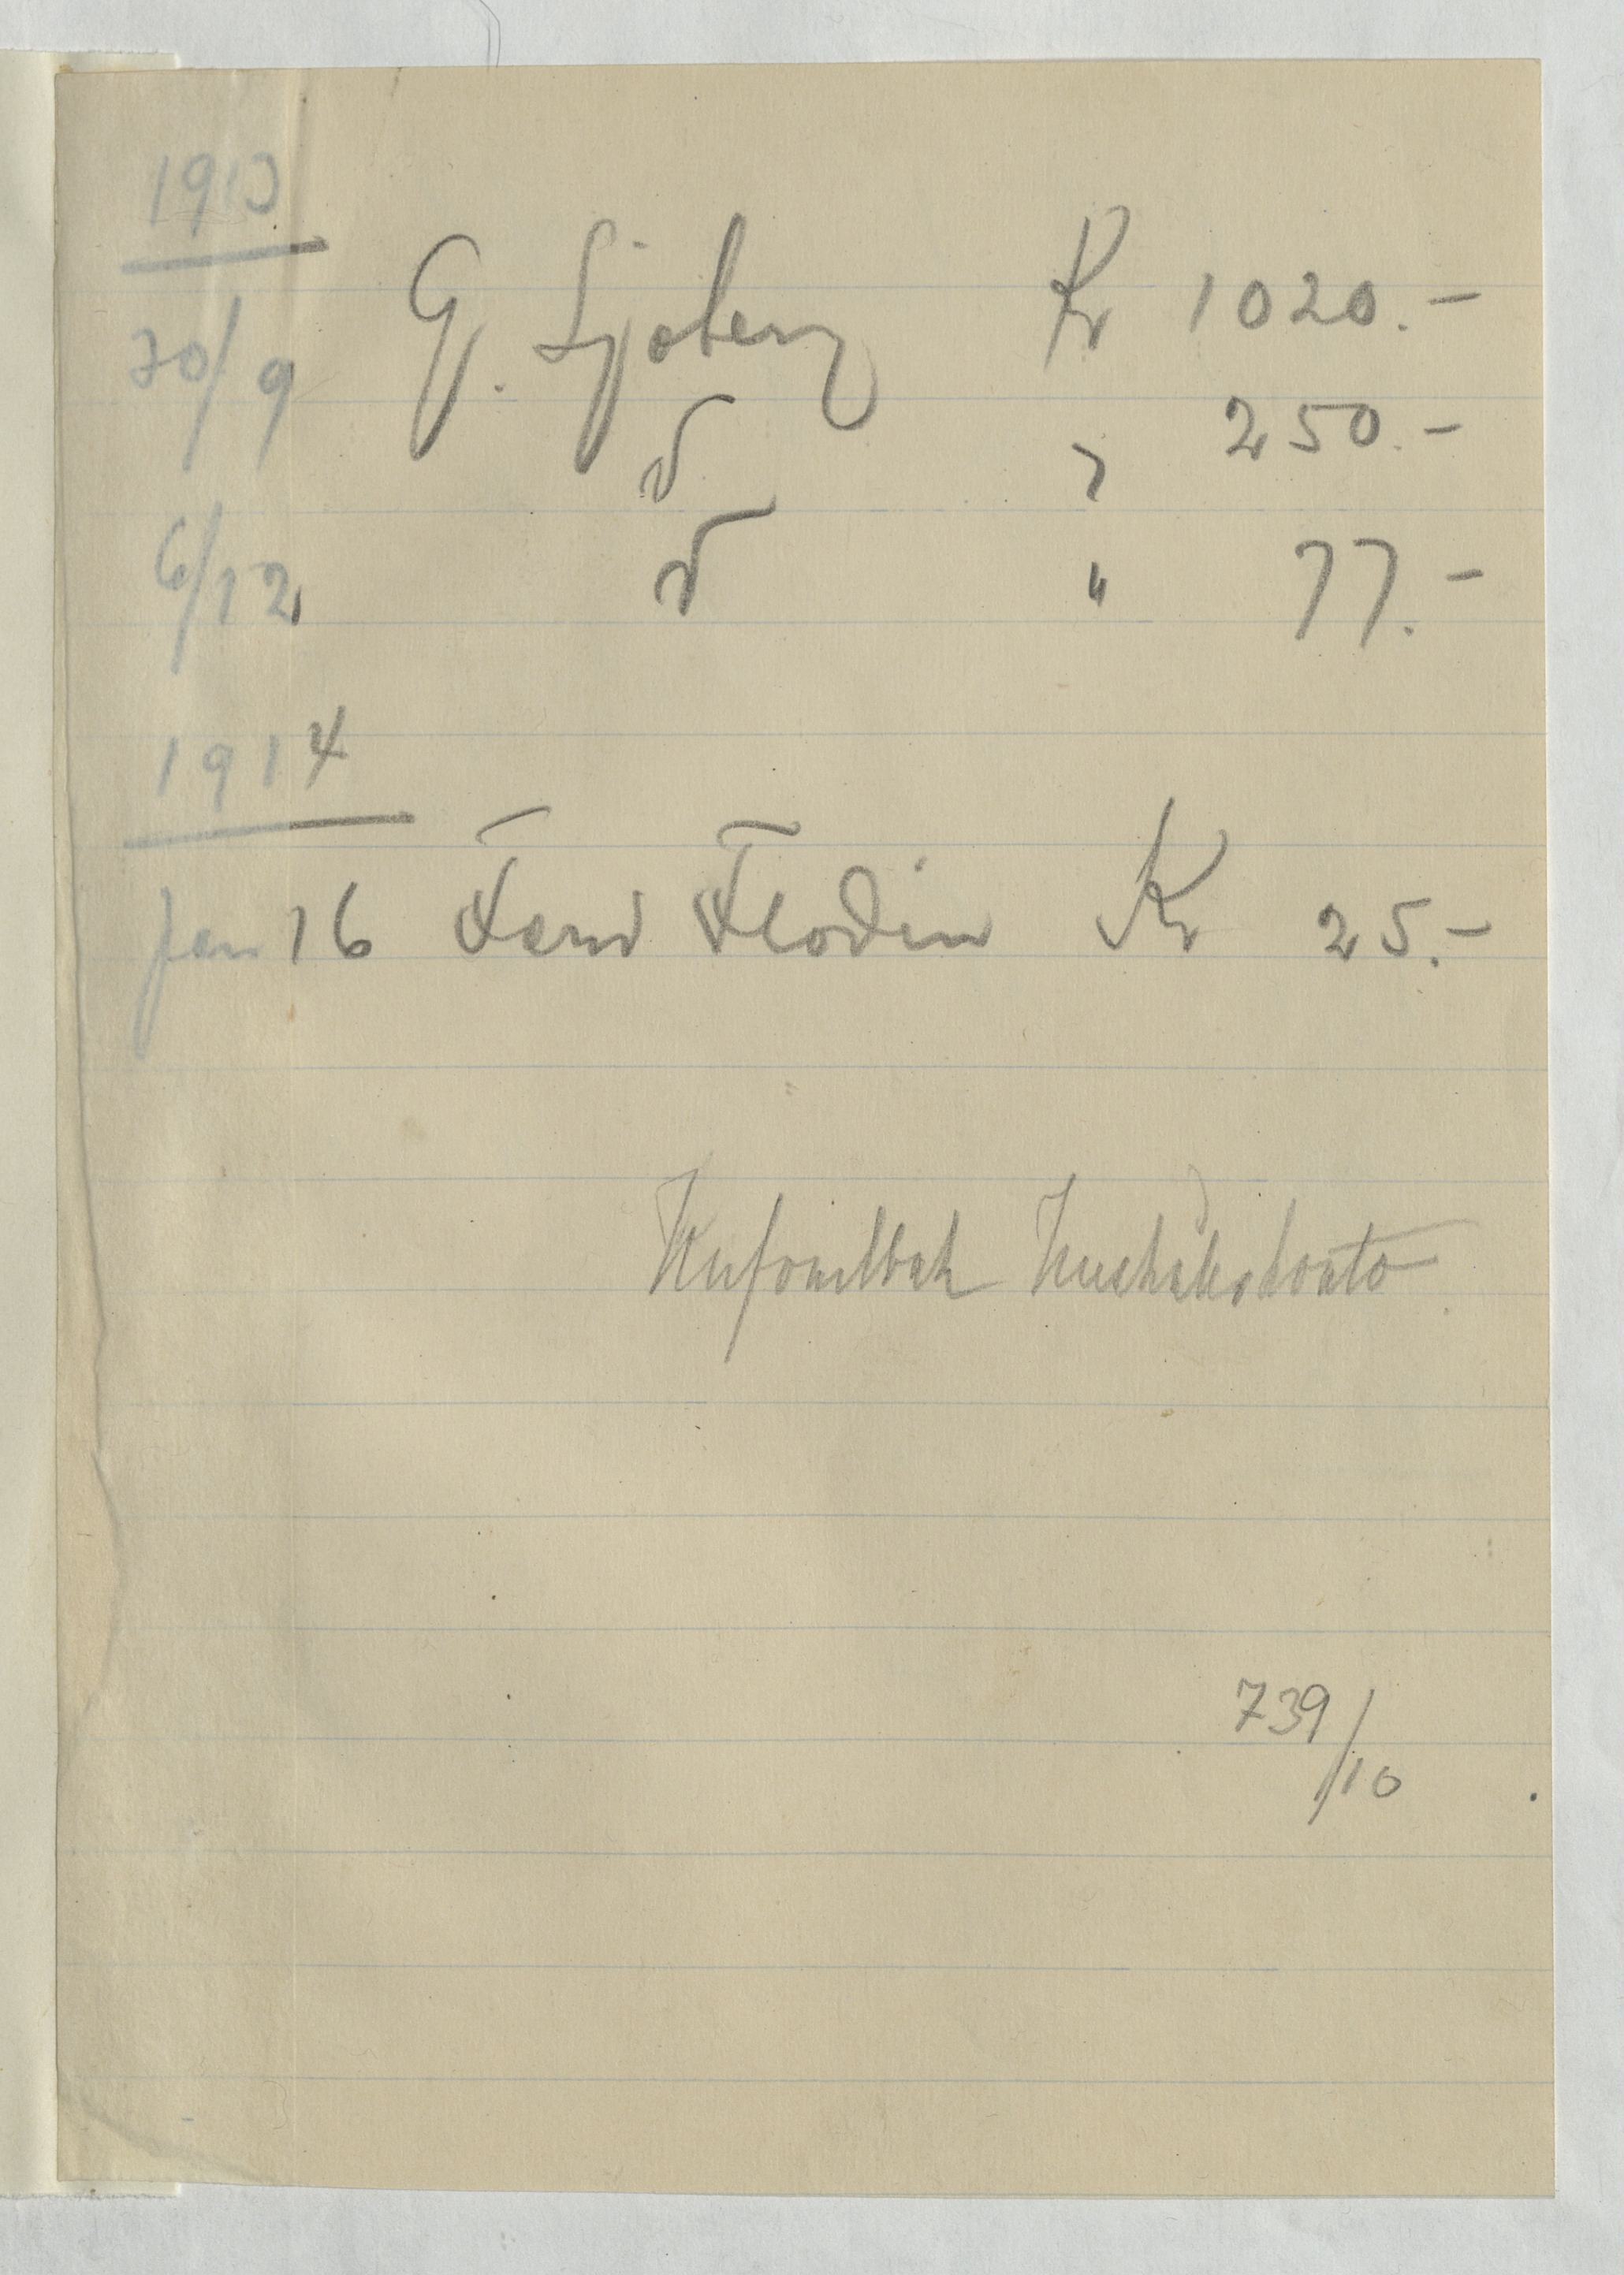 1913
30/9 G. Sjöberg Kr 1020.-
d° " 250.-
6/12 d° " 77.-
1914
Jan 16 Ferd Flodin Kr 25.-
konto
739/10